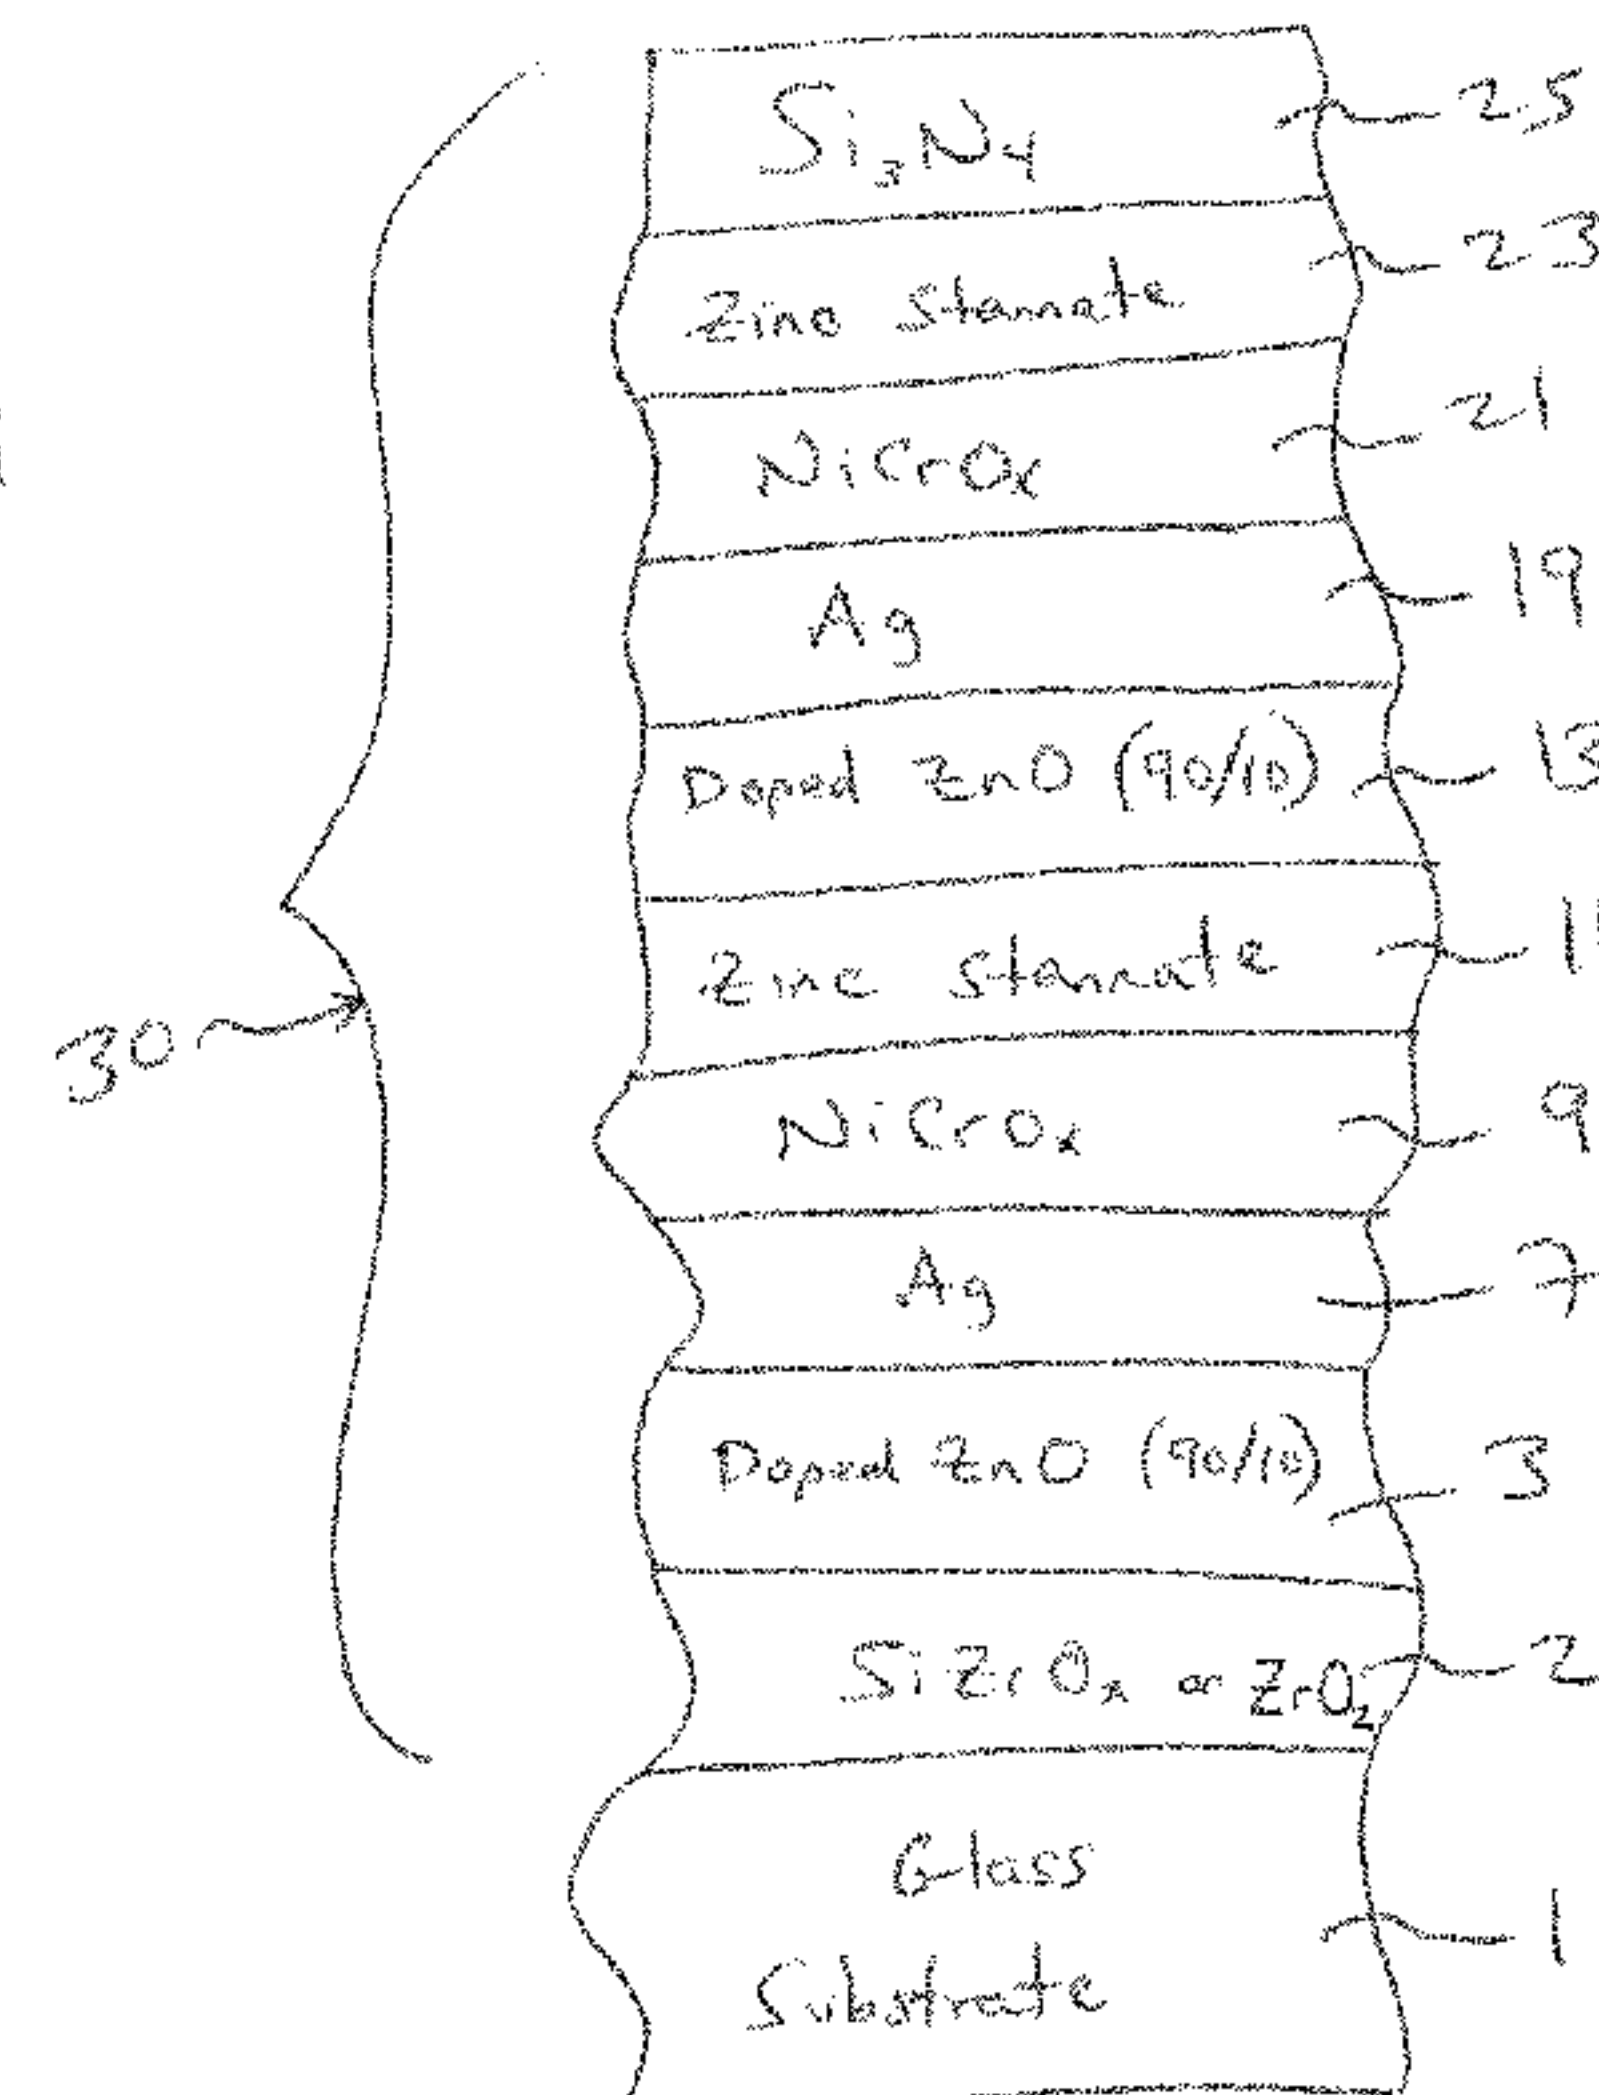 Si₃N₄ 25
Zinc Stannate 23
NiCrOx 21
Ag 19
Doped ZnO (90/10) 13
Zinc Stannate
NiCrOx 9
Ag 7
Doped ZnO (90/10) 3
SiZrOx or ZrO₂ 2
Glass 1
Substrate
30